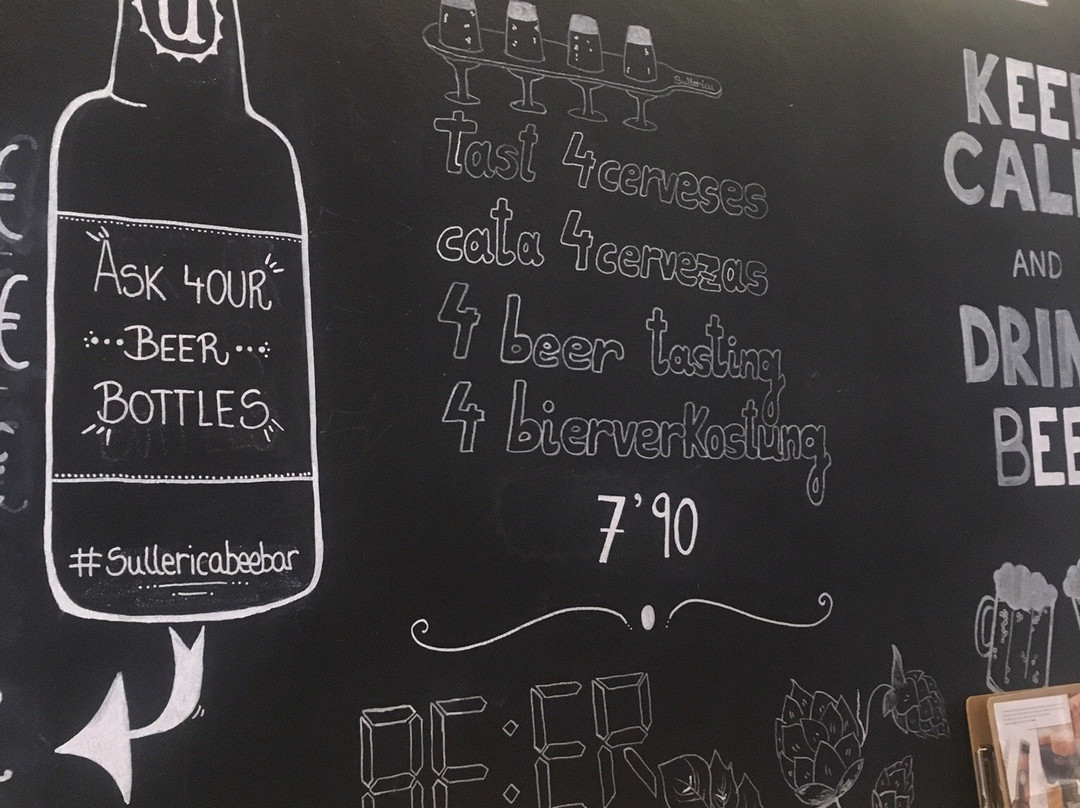 u
ASK 4OUR
BEER
BOTTLES
#Sullericabeebar
Sullerica
Tast 4 cerveses
cata 4 cervezas
4 beer tasting
4 bierverkostung
7'90
BE:ER
KEE
CAL
AND
DRIN
BEE
€
€